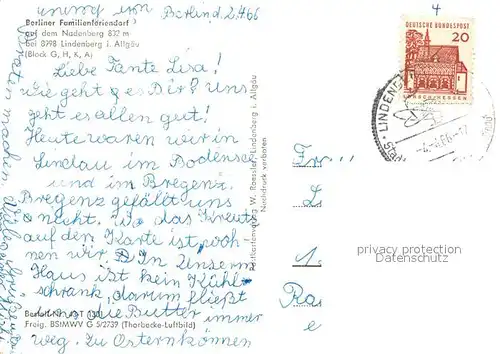 Berlind. 2.4.66
Berliner Familienferiendorf
auf dem Nadenberg 832 m
bei 8998 Lindenberg i. Allgäu
(Block G, H, K, A)
Liebe Tante Lisa!
Wie geht es Dir? Uns
geht es allen gut!
Heute waren wir in
Lindau im Bodensee
und in Bregenz.
Bregenz gefällt uns
nicht. Wo das Kreuz
auf den Karte ist woh-
nen wir. In Unserm
Haus ist kein Kühl-
schrank, darum fließt
uns die Butter immer
weg. Zu Ostern können
Freig. BStMWV G 5/2739 (Thorbecke-Luftbild)
Postkartenverlag W. Roessler, Lindenberg i. Allgäu
Nachdruck verboten
4
DEUTSCHE BUNDESPOST
20
LORSCH/HESSEN
LINDENB
-4.4.66-17
Fr
L
1.
Ra
e
privacy protection
Datenschutz